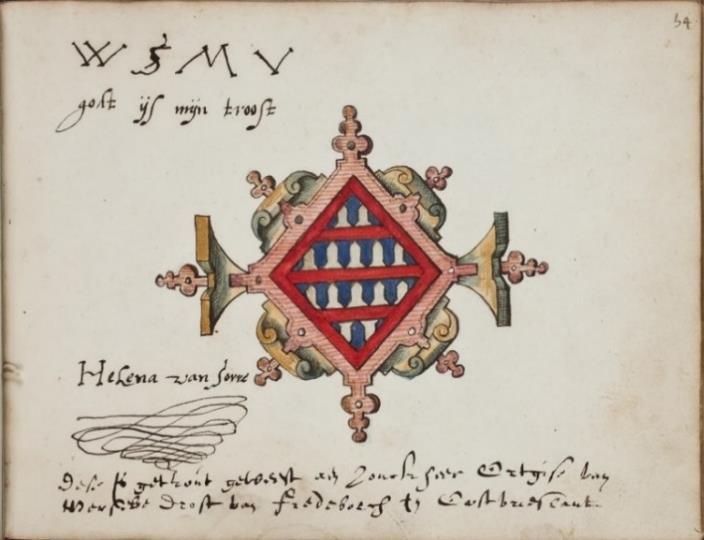 54
W § M V
godt ijs mijn troost
Helena van
Dese is getrout geweest aen Joncheer Ortgis van
Wersebe Drost van Fredeborch in Oostvrieslant.